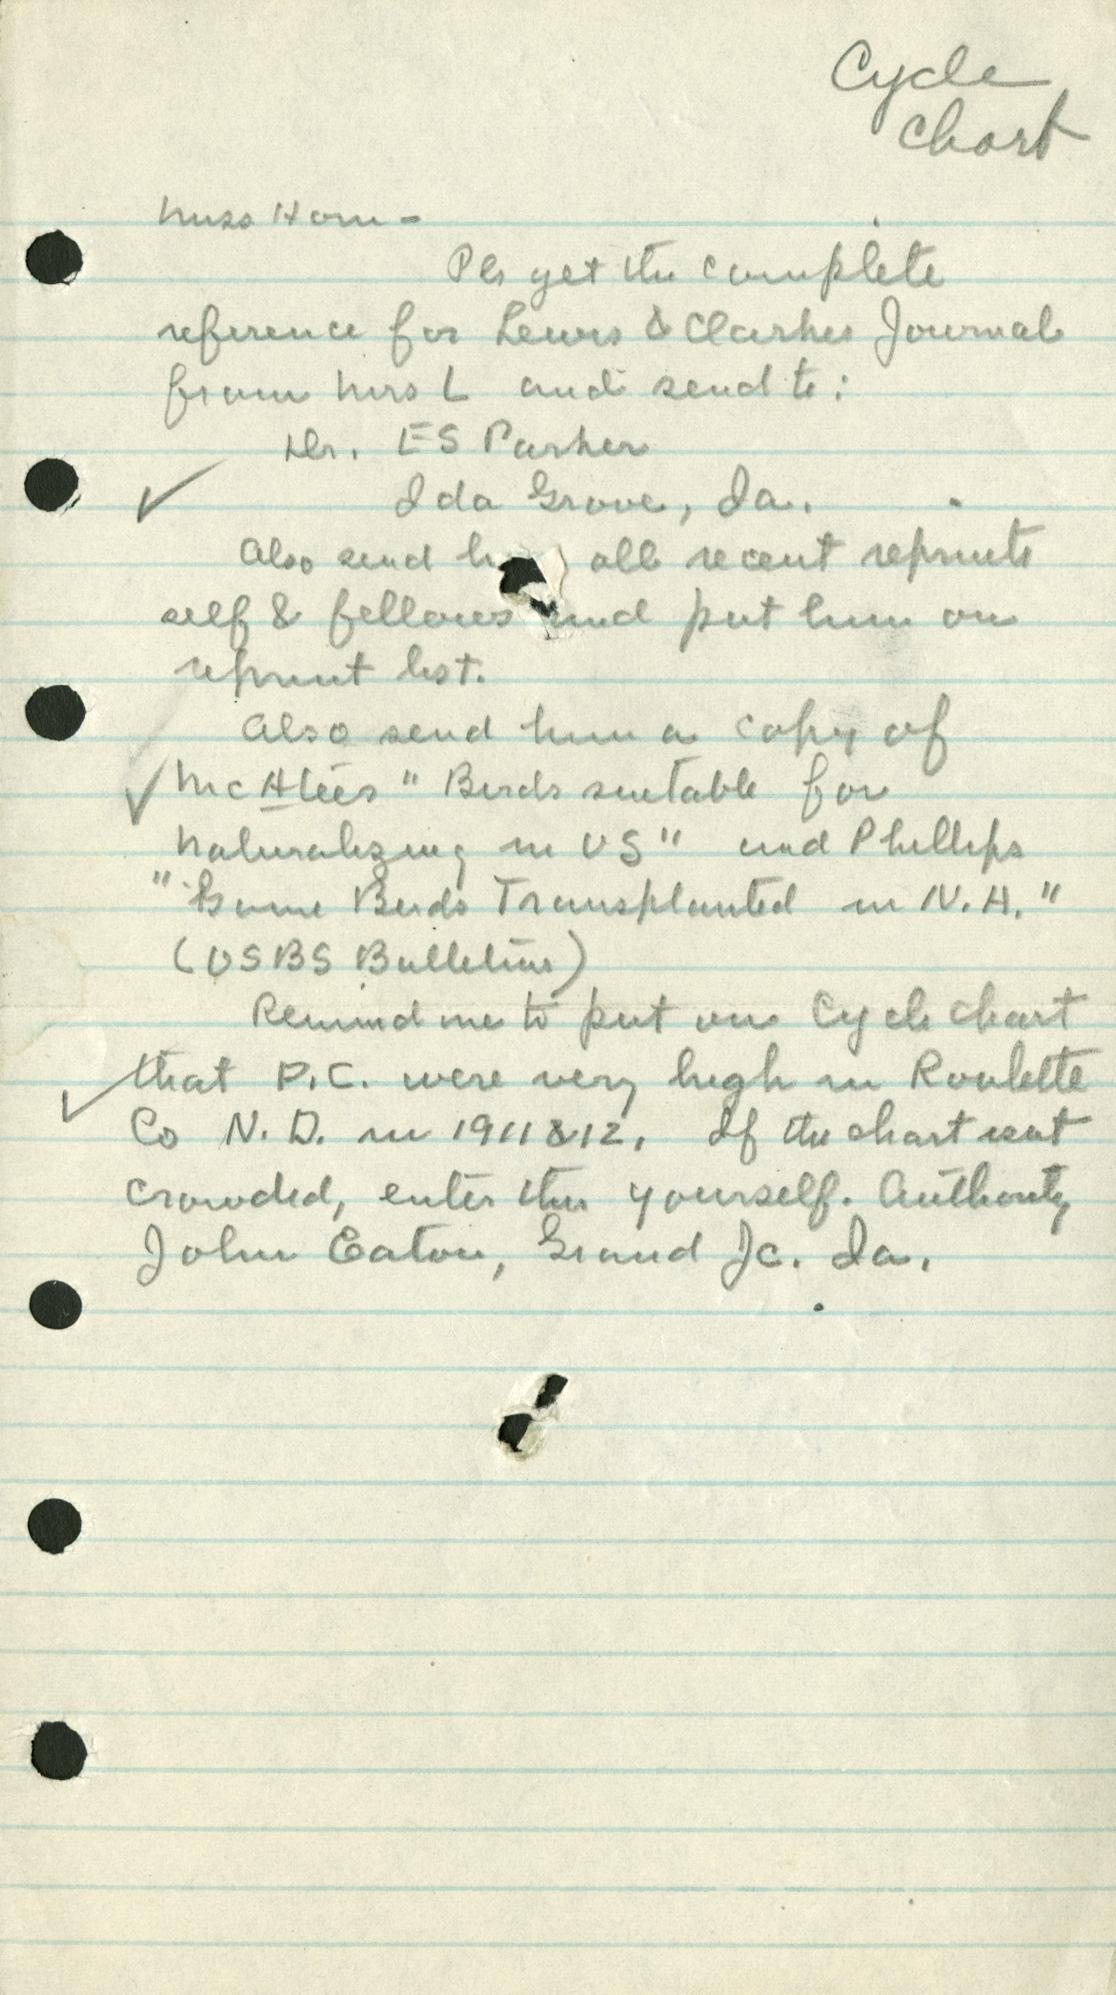 Cycle
Chart
Miss Horn -
Pls get the complete
reference for Lewis & Clarkes Journal
from Mrs L and send to:
Dr. ES Parker
Ida Grove, Ia.
Also send h all recent reprints
self & fellows and put him on
reprint list.
Also send him a copy of
McAtees "Birds suitable for
Naturalizing in US" and Phillips
"Game Birds Transplanted in N.A."
(USBS Bulletins)
Remind me to put on Cycle chart
that P.C. were very high in Roulette
Co N.D. in 1911 & 12. If the chart isnt
crowded, enter this yourself. Authority
John Eaton, Grand Jc. Ia.